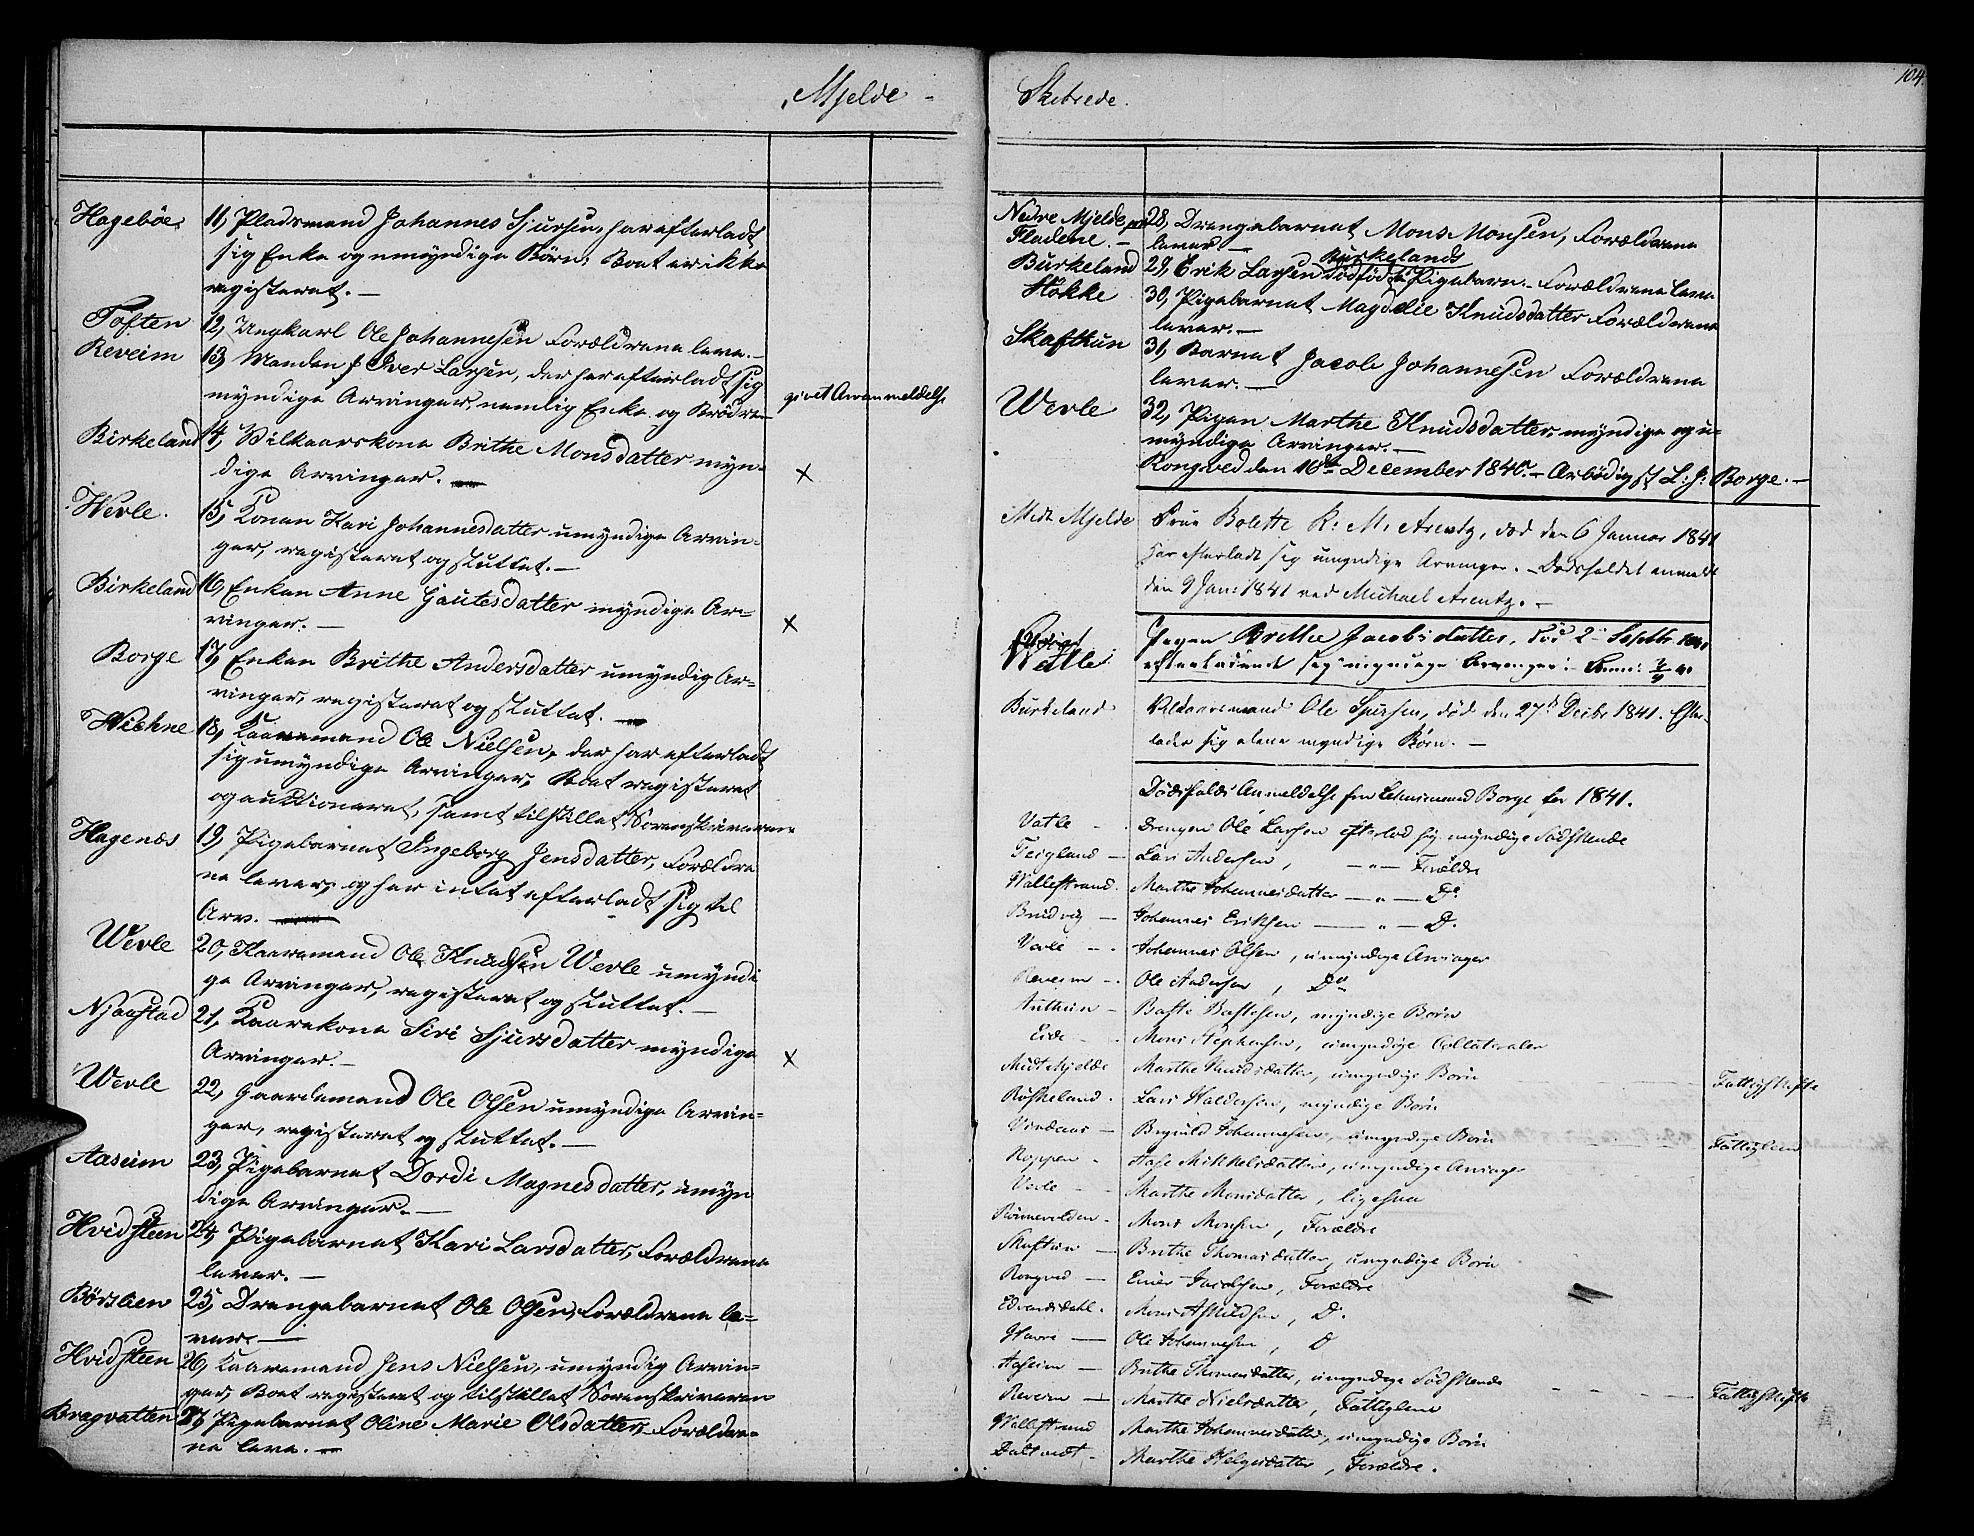 Mjelde -
Hagebøe 11, Pladsmand Johannes Sjursen, har efterladt
sig Enke og umyndige Børn; Boet er ikke
registeret. —
Toften 12, Ungkarl Ole Johannesen Forældrene leve. —
Reveim 13, Manden Iver Larsen, der har efterladt sig
myndige Arvinger, nemlig Enke og Brødre — givet Arveanmeldelse
Birkeland 14, Vilkaarskone Brithe Monsdatter myn-
dige Arvinger. — x
Werle. 15, Konen Kari Johannesdatter umyndige Arvin-
ger, registeret og sluttet. —
Birkeland 16, Enken Anne Gautesdatter myndige Ar-
vinger. — x
Borge 17, Enken Brithe Andersdatter umyndig Ar-
vinger, registeret og sluttet. —
Wichne 18, Kaaremand Ole Nielsen, der har efterladt
sig umyndige Arvinger, Boet registeret
og auctioneret, samt tilstillet Sorenskriveren
Hagenæs 19, Pigebarnet Ingeborg Jensdatter, Forældre
ne lever, og har intet efterladt sig til
Arv.
Werle 20, Kaaremand Ole Knudsen Werle umyndi
ge Arvinger, registeret og sluttet. —
Njaastad 21, Kaarekone Siri Sjursdatter myndige
Arvinger. — x
Werle 22, Gaardemand Ole Olsen umyndige Arvin-
ger, registeret og sluttet. —
Aaseim 23, Pigebarnet Dordi Magnesdatter, umyn
dige Arvinger. —
Hvidsteen 24, Pigebarnet Kari Larsdatter, Forældrene
lever. —
Børsteen 25, Drengebarnet Ole Olsen, Forældrene le-
ver. —
Hvidsteen 26, Kaaremand Jens Nielsen, umyndig Arvin-
ger, Boet registeret og tilstillet Sorenskriveren
Bragvatten 27, Pigebarnet Oline Marie Olsdatter, Forældre-
ne leve. —
Skibrede.
104.
Nedre Mjelde
Fladene. — 28, Drengebarnet Mons Monsen, Forældrene
lever. —
Burkeland 29, Erik Larsen Burkelands dødfødte Pigebarn. — Forældrene leve
Høkke 30, Pigebarnet Magdelie Knudsdatter Forældrene
lever. —
Skafthun 31, Barnet Jacob Johannesen Forældrene
lever. —
Werle 32, Pigen Marthe Knudsdatter, myndige og u-
myndige Arvinger. —
Rongved den 16de December 1840. — Ærbødigst L: J: Borge. —
Midt Mjelde Frue Bolette K: M: Arentz, død den 6 Januar 1841
har efterladt sig umyndige Arvinger. — Dødsfaldet anmeldt
den 9 Jan: 1841 ved Michael Arentz. —
Pigen Brithe Jacobsdatter, død 2 Septbr
efterladende sig myndige Arvinger. —
Burkeland Vilkaarsmand Ole Sjursen, død den 27d Decbr 1841. Efter-
lader sig alene myndige Børn. —
Dødsfalds Anmeldelse fra Lehnsmand Borge for 1841.
Vatle — Drengen Ole Larsen efterlod sig myndige Sødskende
Teigland — Lars Andersen, — " — Forældre
Wallestrand. Marthe Johannesdatter — " — Do
Brudvig — Johannes Eriksen — " — Do.
Verle — Johannes Olsen, umyndige Arvinger
Reveim — Ole Andersen, Do
Authun — Baste Bastesen, myndige Børn
Eide — Mons Stephensen, umyndige Collateraler
Midt Mjelde Marthe Knudsdatter, umyndige Børn — Fattigskifte
Røskeland. Lars Haldersen, myndige Børn
Vindaas — Brynild Johannesen, umyndige Børn — Fattiglem
Koppen — Aase Mikkelsdatter, umyndige Arvinger
Verle — Marthe Monsdatter, ligesaa
Rønnevolden. Mons Monsen, Forældre
Skaftun — Brithe Thomasdatter, umyndige Børn
Rongved — Einer Jacobsen, Forældre
Edvardsdahl. Mons Askildsen, Do.
Havre — Ole Johannesen, Do
Aaseim — Brithe Thomasdatter, umyndige Sødskende
Reveim — Marthe Nielsdatter, Fattiglem — Fattigskifte
Wallestrand Marthe Johannesdatter, umyndige Børn
Daltvedt — Marthe Helgesdatter, Forældre.